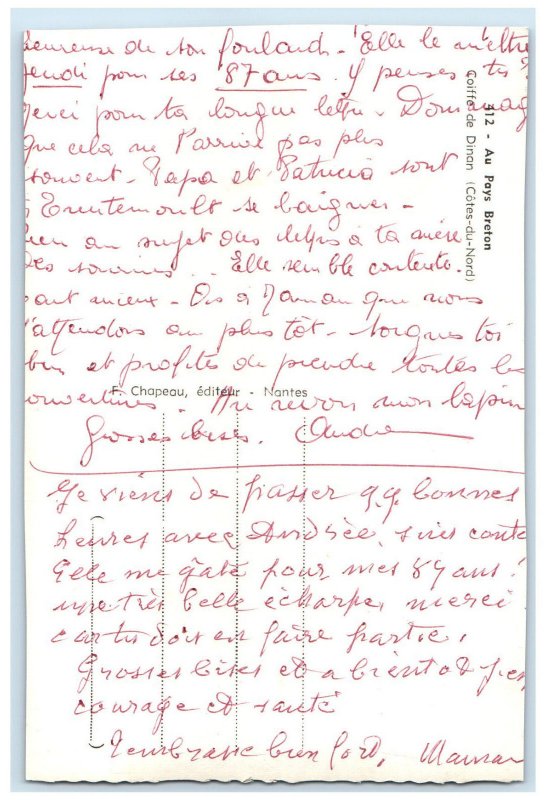 heureuse de son foulard - Elle le mettra
jeudi pour ses 87 ans. y penses tu ?
merci pour ta longue lettre - Dommage
que cela ne t'arrive pas plus
souvent - Papa et Patricia sont
à Trentemoult se baigner -
au sujet des lettres à ta mère
Elle semble contente.
tant mieux - Dis à Maman que nous
t'attendons au plus tôt - soignes toi
bien et profites de prendre toutes les
Au revoir mon lapin
Grosses bises. Andrée
Je viens de passer q.q. bonnes
heures avec Andrée, suis contente
Elle me gate pour mes 87 ans !
une très belle écharpe, merci
car tu dois en faire partie.
Grosses bises et a bientot
courage et santé
T'embrasse bien fort, Maman
312 - Au Pays Breton
Coiffe de Dinan (Côtes-du-Nord)
F. Chapeau, éditeur - Nantes